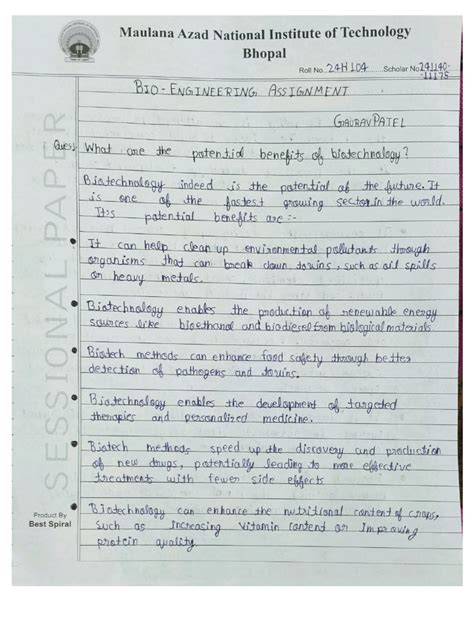 Maulana Azad National Institute of Technology
Bhopal
Roll No. 24H104 Scholar No. 241140-
-11175
BIO-ENGINEERING ASSIGNMENT
GAURAV PATEL
Ques: What are the potential benefits of biotechnology?
Biotechnology indeed is the potential of the future. It
is one of the fastest growing sector in the world.
It's potential benefits are :-
It can help clean up environmental pollutants through
organisms that can break down toxins, such as oil spills
or heavy metals.
Biotechnology enables the production of renewable energy
sources like bioethanol and biodiesel from biological materials.
Biotech methods can enhance food safety through better
detection of pathogens and toxins.
Biotechnology enables the development of targeted
therapies and personalized medicine.
Biotech methods speed up the discovery and production
of new drugs, potentially leading to more effective
treatments with fewer side effects
Biotechnology can enhance the nutritional content of crops,
such as increasing vitamin content or improving
protein quality.
SESSIONAL PAPER
Product By
Best Spiral